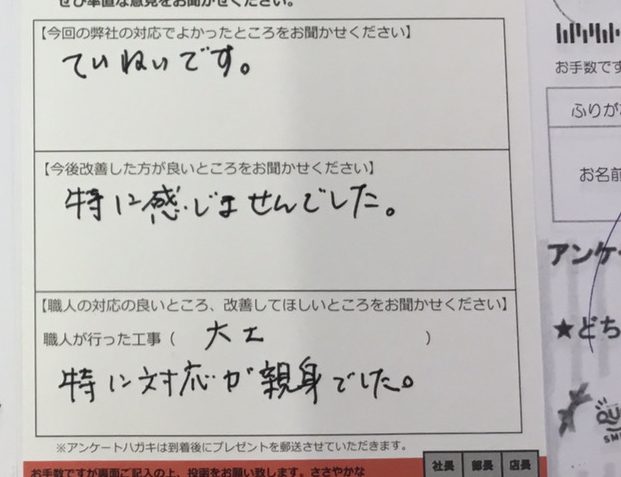 ぜひ率直な意見をお聞かせください。
【今回の弊社の対応でよかったところをお聞かせください】
ていねいです。
【今後改善した方が良いところをお聞かせください】
特に感じませんでした。
【職人の対応の良いところ、改善してほしいところをお聞かせください】
職人が行った工事（ 大工 ）
特に対応が親身でした。
※アンケートハガキは到着後にプレゼントを郵送させていただきます。
お手数ですが裏面ご記入の上、投函をお願い致します。ささやかな
社長 部長 店長
お手数です
ふりが
お名前
アンケ
★どち